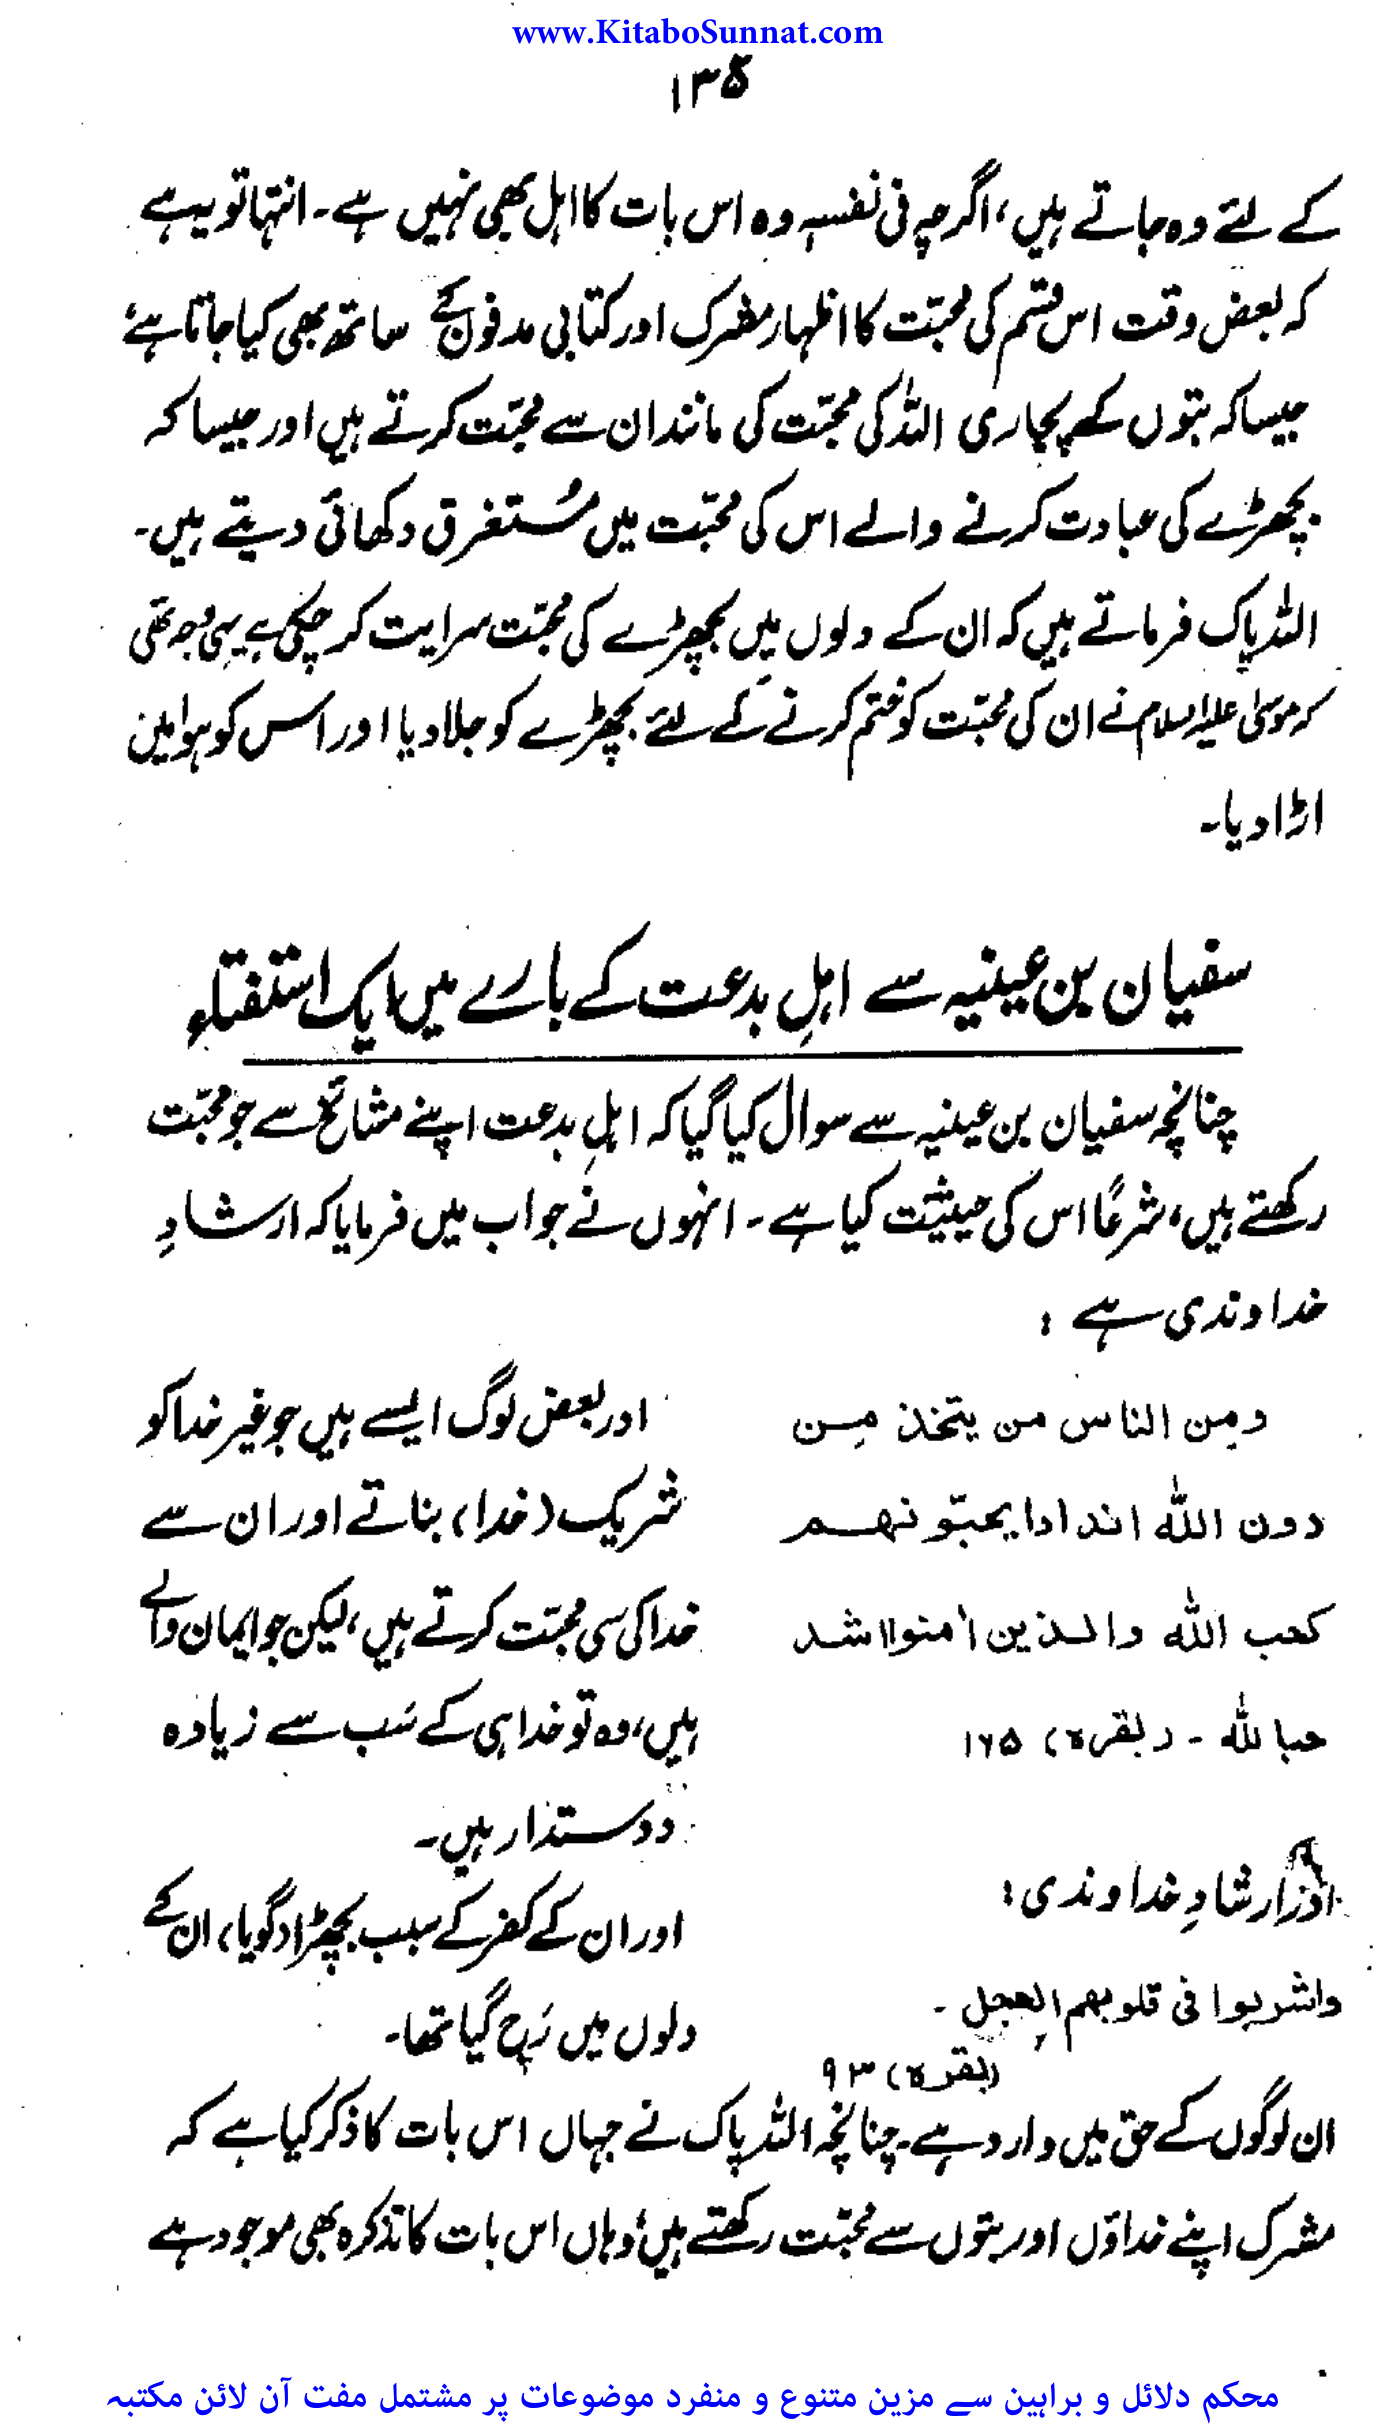 www.KitaboSunnat.com
۱۳۵
کے لئے وہ جاتے ہیں، اگرچہ فی نفسہٖ وہ اس بات کا اہل بھی نہیں ہے۔ انتہا تو یہ ہے
کہ بعض وقت اس قسم کی محبّت کا اظہار مشرک اور کتابی مدفون کے ساتھ بھی کیا جاتا ہے،
جیسا کہ بتوں کے پجاری اللہ کی محبّت کی مانند ان سے محبّت کرتے ہیں اور جیسا کہ
بچھڑے کی عبادت کرنے والے اس کی محبّت میں مُستغرق دکھائی دیتے ہیں۔
اللہ پاک فرماتے ہیں کہ ان کے دلوں میں بچھڑے کی محبّت سرایت کر چکی ہے یہی وجہ تھی
کہ موسیٰ علیہ السلام نے ان کی محبّت کو ختم کرنے کے لئے بچھڑے کو جلا دیا اور اس کو ہوا میں
اڑا دیا۔
سفیان بن عینیہ سے اہلِ بدعت کے بارے میں ایک استفتاء
چنانچہ سفیان بن عینیہ سے سوال کیا گیا کہ اہلِ بدعت اپنے مشائخ سے جو محبّت
رکھتے ہیں، شرعًا اس کی حیثیّت کیا ہے۔ انہوں نے جواب میں فرمایا کہ ارشادِ
خداوندی ہے :
ومِن الناس من یتخذ مِن
دون اللہ اندادا یحبّونھم
کحب اللہ والذین اٰمنوا اشد
حبا للہ ۔ (بقرہ) ۱۶۵
اور بعض لوگ ایسے ہیں جو غیر خدا کو
شریک (خدا) بناتے اور ان سے
خدا کی سی محبّت کرتے ہیں، لیکن جو ایمان والے
ہیں، وہ تو خدا ہی کے سَب سے زیادہ
دوستدار ہیں۔
اور ارشادِ خداوندی :
واشربوا فی قلوبھم العجل ۔
(بقرہ) ۹۳
اور ان کے کفر کے سبب بچھڑا (گویا) ان کے
دلوں میں رَچ گیا تھا۔
ان لوگوں کے حق میں وارد ہے۔ چنانچہ اللہ پاک نے جہاں اس بات کا ذکر کیا ہے کہ
مشرک اپنے خداؤں اور بتوں سے محبّت رکھتے ہیں، وہاں اس بات کا تذکرہ بھی موجود ہے
محکم دلائل و براہین سے مزین متنوع و منفرد موضوعات پر مشتمل مفت آن لائن مکتبہ